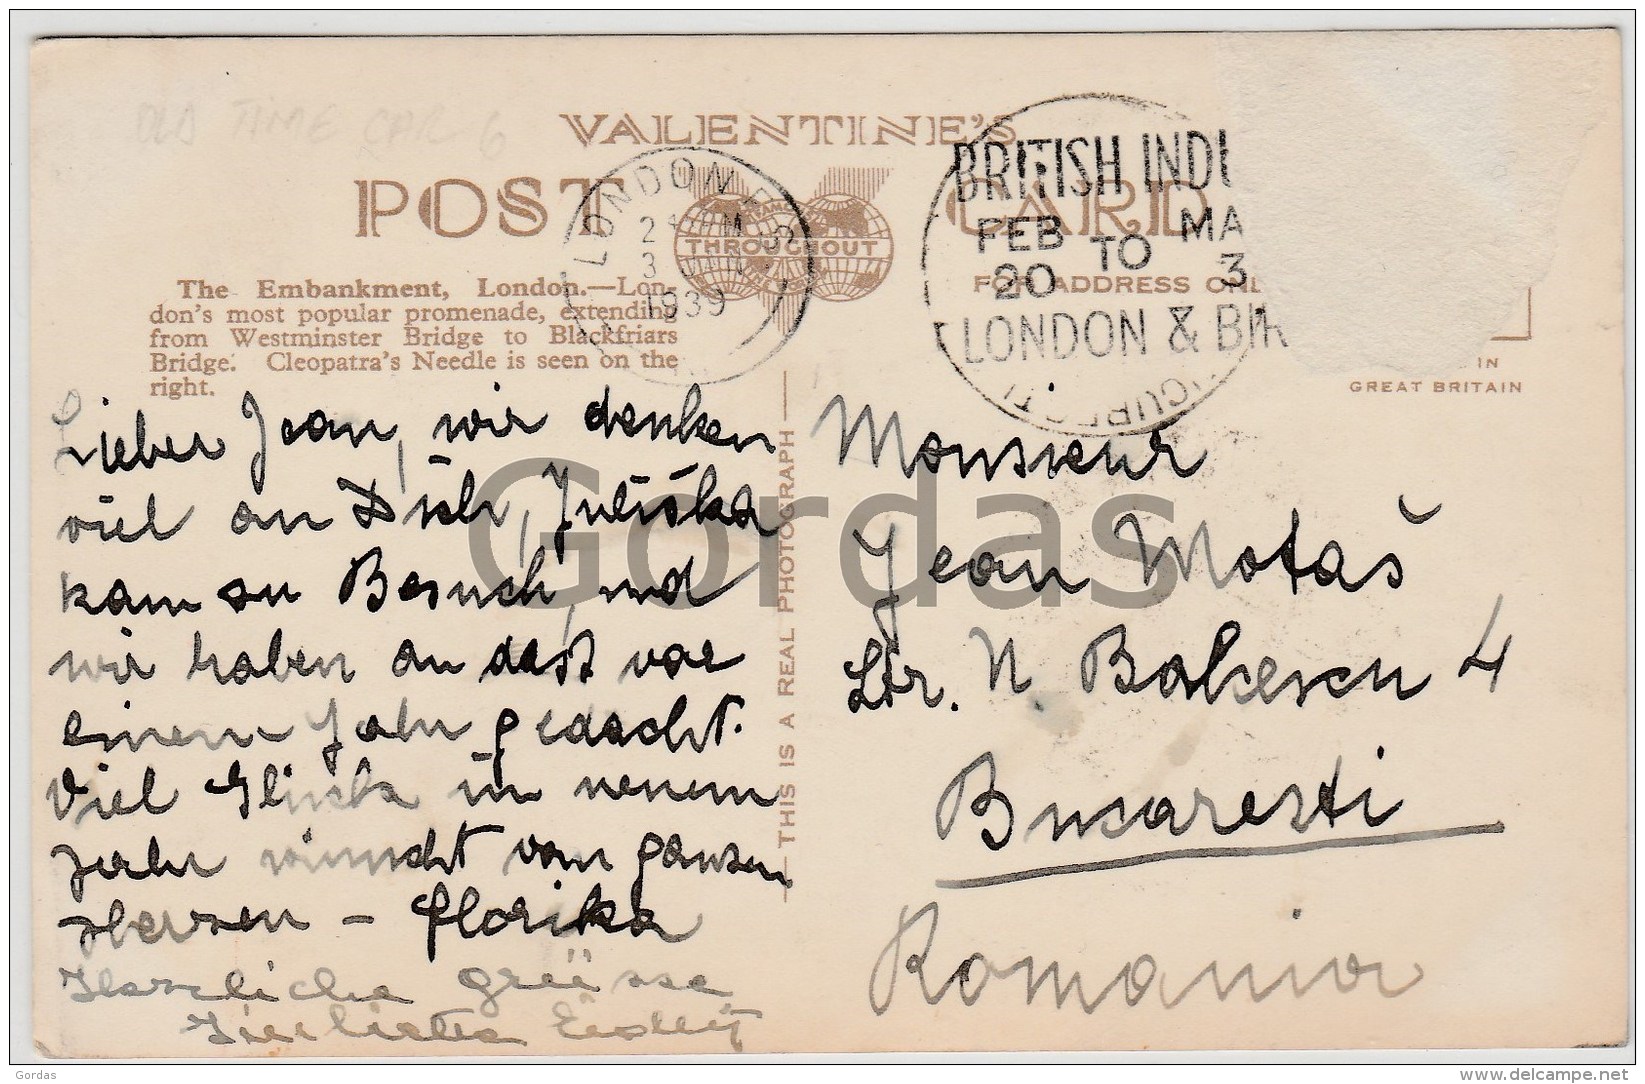 OLD TIME CAR 6
VALENTINE'S
POST CARD
FAMOUS
THROUGHOUT
FOR ADDRESS ONL
LONDON
2
3 JAN
1939
BRITISH INDU
FEB TO MA
20 3
LONDON & BIR
The Embankment, London.—Lon-
don's most popular promenade, extending
from Westminster Bridge to Blackfriars
Bridge. Cleopatra's Needle is seen on the
right.
IN
GREAT BRITAIN
THIS IS A REAL PHOTOGRAPH
Lieber Jean, wir denken
viel an Dich, Juliska
kam zu Besuch, und
wir haben an das vor
einem Jahr gedacht.
Viel Glück im neuem
Jahr wünscht vom ganzen
Herzen – Florika
Herzliche Grüsse
Monsieur
Jean Motaš
Str. N. Balcescu 4
Bucaresti
Romania
Gordas
Gordas
www.delcampe.net